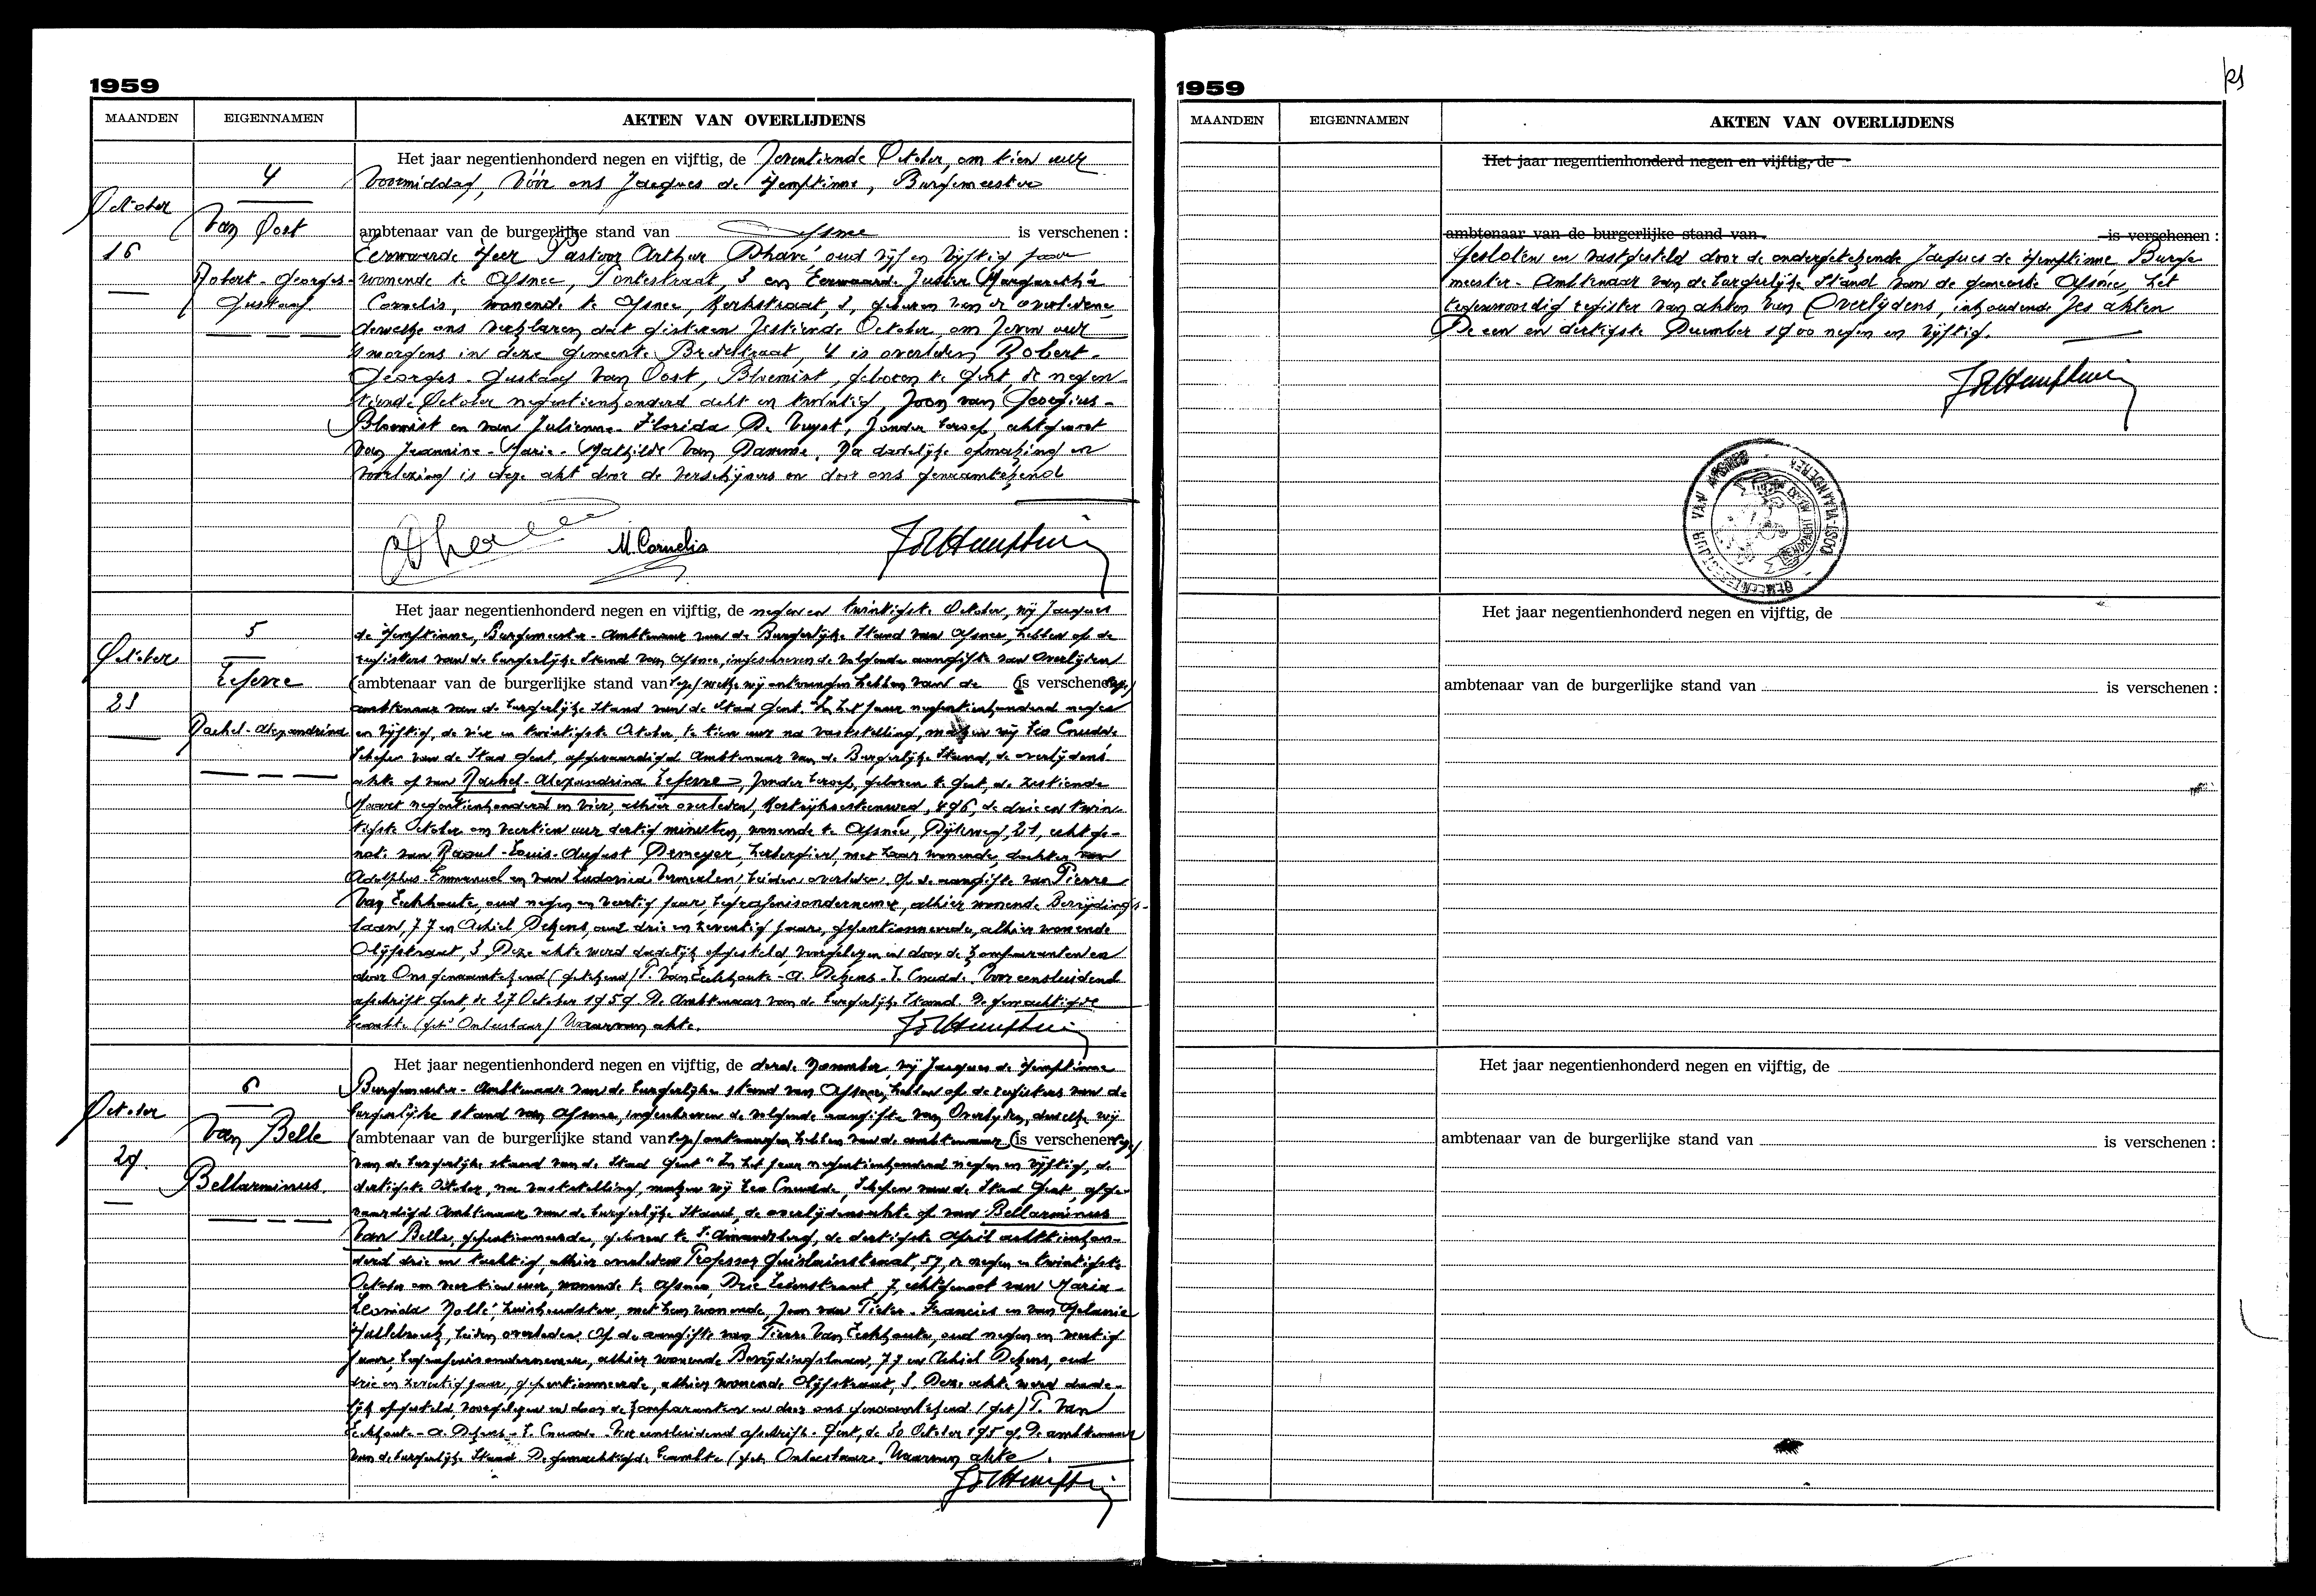 1959
MAANDEN EIGENNAMEN AKTEN VAN OVERLIJDENS
4
October
16
Van Oost
Robert-Georges-
Gustaaf.
Het jaar negentienhonderd negen en vijftig, de zeventiende October, om tien uur
voormiddag, vóór ons Jacques de Hemptinne, Burgemeester
ambtenaar van de burgerlijke stand van Afsnee is verschenen :
Eerwaarde Heer Pastoor Arthur Dhavé oud vijf en vijftig jaar
wonende te Afsnee, Pontestraat, 3 en Eerwaarde Zuster Margaretha
Cornelis, wonende te Afsnee, Kerkstraat, 1, geburen van de overledene
dewelke ons verklaren dat gisteren zestiende October, om zeven uur
's morgens in deze gemeente Broekstraat, 4 is overleden Robert-
Georges-Gustaaf Van Oost, Bloemist, geboren te Gent, de negen-
tiende October negentienhonderd acht en twintig, zoon van Georgius-
Bloemist en van Julienne-Florida De Vuyst, zonder beroep, echtgenoot
van Jeannine-Marie-Mathilde Van Damme. Na dadelijke opmaking en
voorlezing is deze akt door de verschijners en door ons genaamtekend
M. Cornelis
5
October
23
Lefevre
Rachel-Alexandrina
Het jaar negentienhonderd negen en vijftig, de negen en twintigste October, wij Jacques
de Hemptinne, Burgemeester-Ambtenaar van de Burgerlijke Stand van Afsnee, hebben op de
registers van de burgerlijke Stand van Afsnee, ingeschreven de volgende aangifte van Overlijden
(ambtenaar van de burgerlijke stand van welke wij ontvangen hebben van de (is verschenen
ambtenaar van de burgerlijke Stand van de Stad Gent. "In het jaar negentienhonderd negen
en vijftig, de vier en twintigste October, te tien uur na vaststelling, maken wij Leo Cnudde
Schepen van de Stad Gent, afgevaardigd Ambtenaar van de Burgerlijke Stand, de overlijdens
akte op van Rachel-Alexandrina Lefevre, zonder beroep, geboren te Gent, de zestiende
Maart negentienhonderd en vier, alhier overleden, Kortrijksesteenweg, 496, de drie en twin-
tigste October om veertien uur dertig minuten, wonende te Afsnee, Duifweg, 21, echtge-
note van Raoul-Louis-August Demeyer, herbergier, met haar wonende, dochter van
Adolphus-Emmanuel en van Ludovica Vermeulen, beiden overleden. Op de aangifte van Pierre
Van Eeckhaute, oud negen en veertig jaar, begrafenisondernemer, alhier wonende Bevrijdings-
laan, 77 en Achiel Dekens, oud drie en zeventig jaar, gepensionneerde, alhier wonende
Olijfstraat, 3. Deze akte werd dadelijk opgesteld, voorgelezen en door de komparanten en
door Ons genaamtekend (getekend) P. Van Eeckhaute - A. Dekens - L. Cnudde. Voor eensluidend
afschrift Gent, de 27 October 1959. De Ambtenaar van de burgerlijke Stand. De gemachtigde
beambte (get. Waarvan akte.
6
October
29.
Van Belle
Bellarminus.
Het jaar negentienhonderd negen en vijftig, de derde November, wij Jacques de Hemptinne
Burgemeester-Ambtenaar van de burgerlijke stand van Afsnee, hebben op de registers van de
burgerlijke stand van Afsnee, ingeschreven de volgende aangifte van Overlijden, dewelke wij
(ambtenaar van de burgerlijke stand van ontvangen hebben van de ambtenaar (is verschenen
van de burgerlijke stand van de Stad Gent "In het jaar negentienhonderd negen en vijftig, de
dertigste October, na vaststelling, maken wij Leo Cnudde, Schepen van de Stad Gent, afge-
vaardigd Ambtenaar van de burgerlijke Stand, de overlijdensakte op van Bellarminus
Van Belle, gepensionneerde, geboren te St Amandsberg, de dertigste April achttienhon-
derd drie en tachtig, alhier overleden Professor Guislainstraat, 57, de negen en twintigste
October om veertien uur, wonende te Afsnee, Drie Leienstraat, 7, echtgenoot van Maria-
Leonida Nollé, huishoudster, met hem wonende, zoon van Pieter-Francies en van Melanie
Hallebreck, beiden overleden. Op de aangifte van Pierre Van Eeckhaute, oud negen en veertig
jaar, begrafenisondernemer, alhier wonende Bevrijdingslaan, 77 en Achiel Dekens, oud
drie en zeventig jaar, gepensionneerde, alhier wonende Olijfstraat, 3. Deze akte werd dade-
lijk opgesteld, voorgelezen en door de komparanten en door ons genaamtekend. (get) P. Van
Eeckhaute - A. Dekens - L. Cnudde. Voor eensluidend afschrift. Gent, de 30 October 1959. De ambtenaar
van de burgerlijke Stand De gemachtigde beambte (get. Waarvan akte.
1959
MAANDEN EIGENNAMEN AKTEN VAN OVERLIJDENS
Het jaar negentienhonderd negen en vijftig, de
ambtenaar van de burgerlijke stand van is verschenen :
Gesloten en vastgesteld door de ondergetekende Jacques de Hemptinne, Burge
meester-Ambtenaar van de burgerlijke Stand van de gemeente Afsnee, het
tegenwoordig register van akten van Overlijdens, inhoudende zes akten
De een en dertigste December 1900 negen en vijftig.
GEMEENTEBESTUUR VAN AFSNEE OOST-VLAANDEREN
Het jaar negentienhonderd negen en vijftig, de
ambtenaar van de burgerlijke stand van is verschenen :
Het jaar negentienhonderd negen en vijftig, de
ambtenaar van de burgerlijke stand van is verschenen :